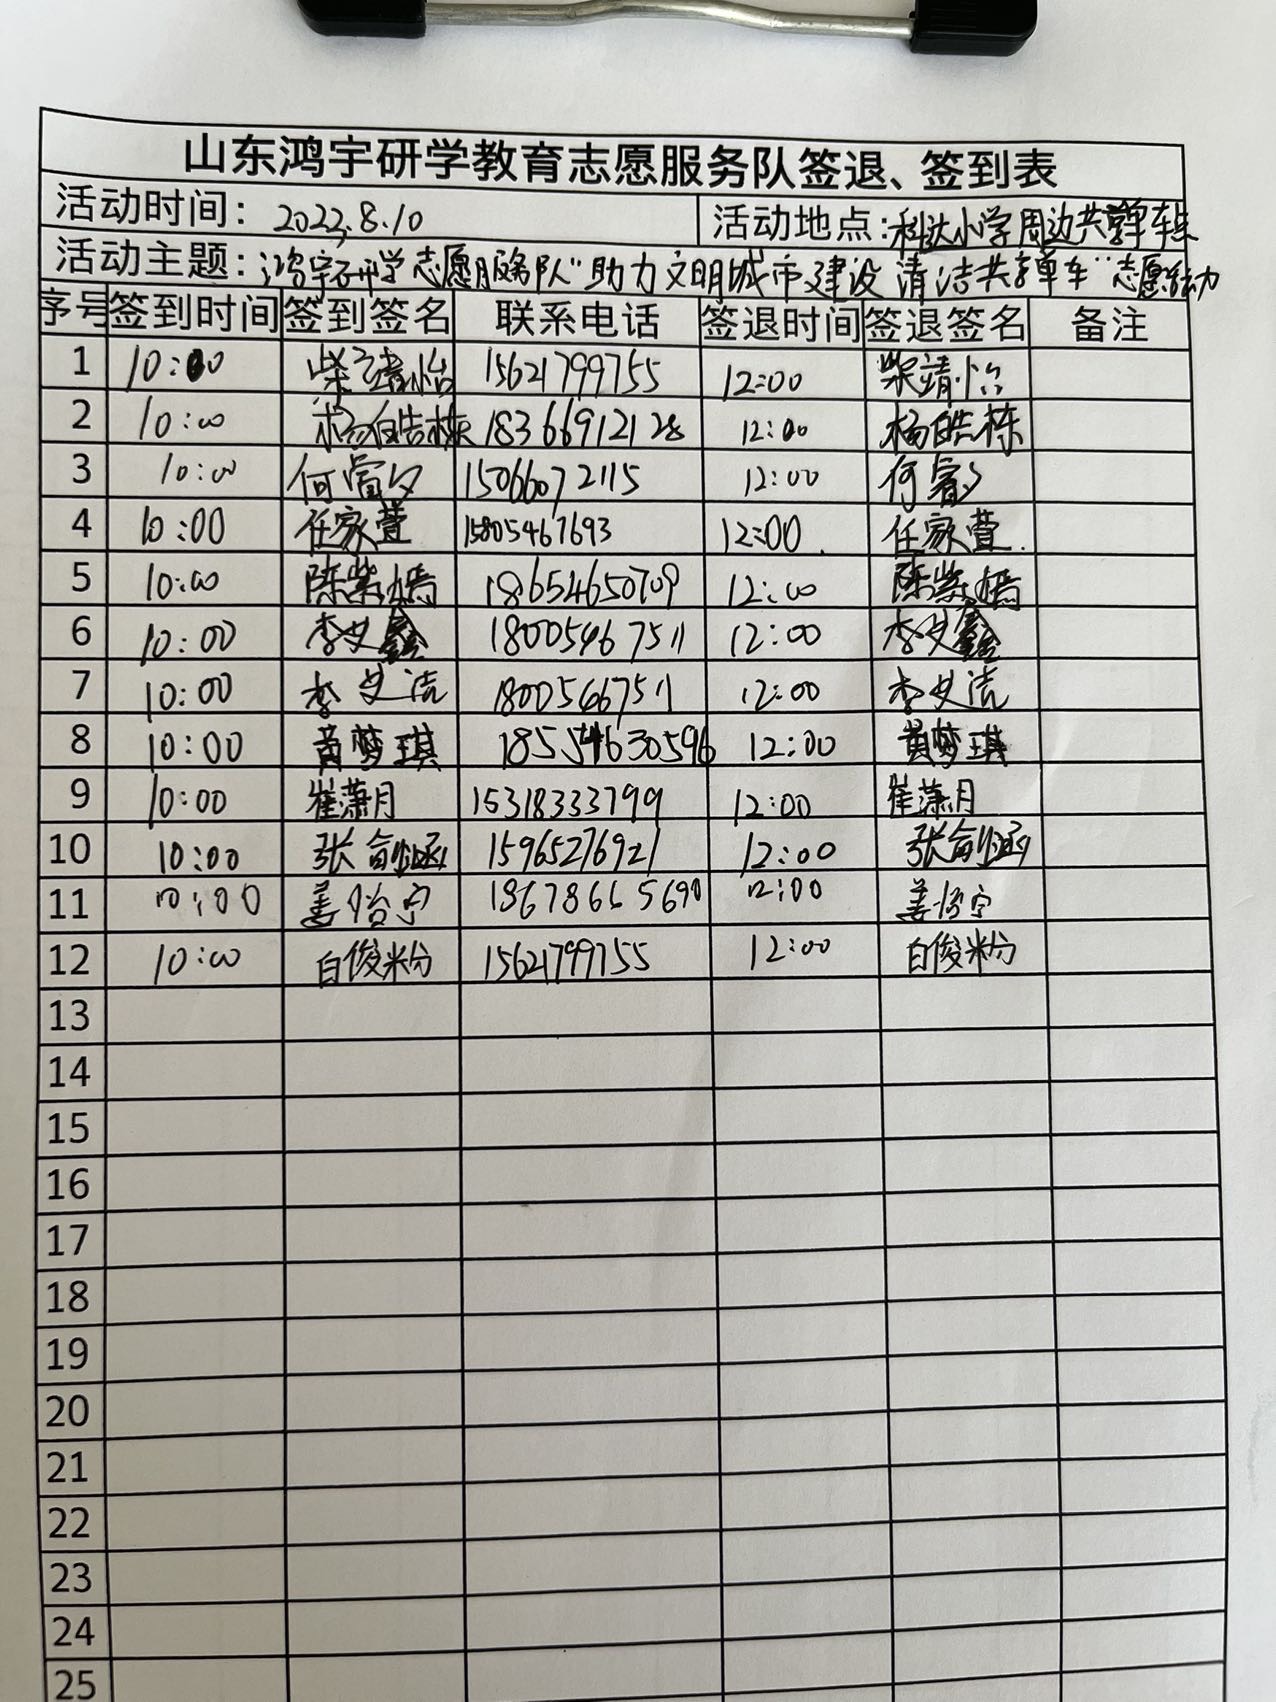 山东鸿宇研学教育志愿服务队签退、签到表
活动时间：2022.8.10 活动地点：科达小学周边共享单车点
活动主题：鸿宇研学志愿服务队“助力文明城市建设 清洁共享单车”志愿活动
序号 签到时间 签到签名 联系电话 签退时间 签退签名 备注
1 10:00 柴靖怡 15621799755 12:00 柴靖怡
2 10:00 杨皓栋 18366912128 12:00 杨皓栋
3 10:00 何睿夕 15066072115 12:00 何睿夕
4 10:00 任家萱 15805467693 12:00 任家萱
5 10:00 陈紫嫣 18654650709 12:00 陈紫嫣
6 10:00 李文鑫 18005467511 12:00 李文鑫
7 10:00 李文洁 18005467511 12:00 李文洁
8 10:00 黄梦琪 18554630596 12:00 黄梦琪
9 10:00 崔潇月 15318333799 12:00 崔潇月
10 10:00 张 15965276921 12:00 张
11 10:00 姜怡宁 18678665690 12:00 姜怡宁
12 10:00 白俊粉 15621799755 12:00 白俊粉
13
14
15
16
17
18
19
20
21
22
23
24
25